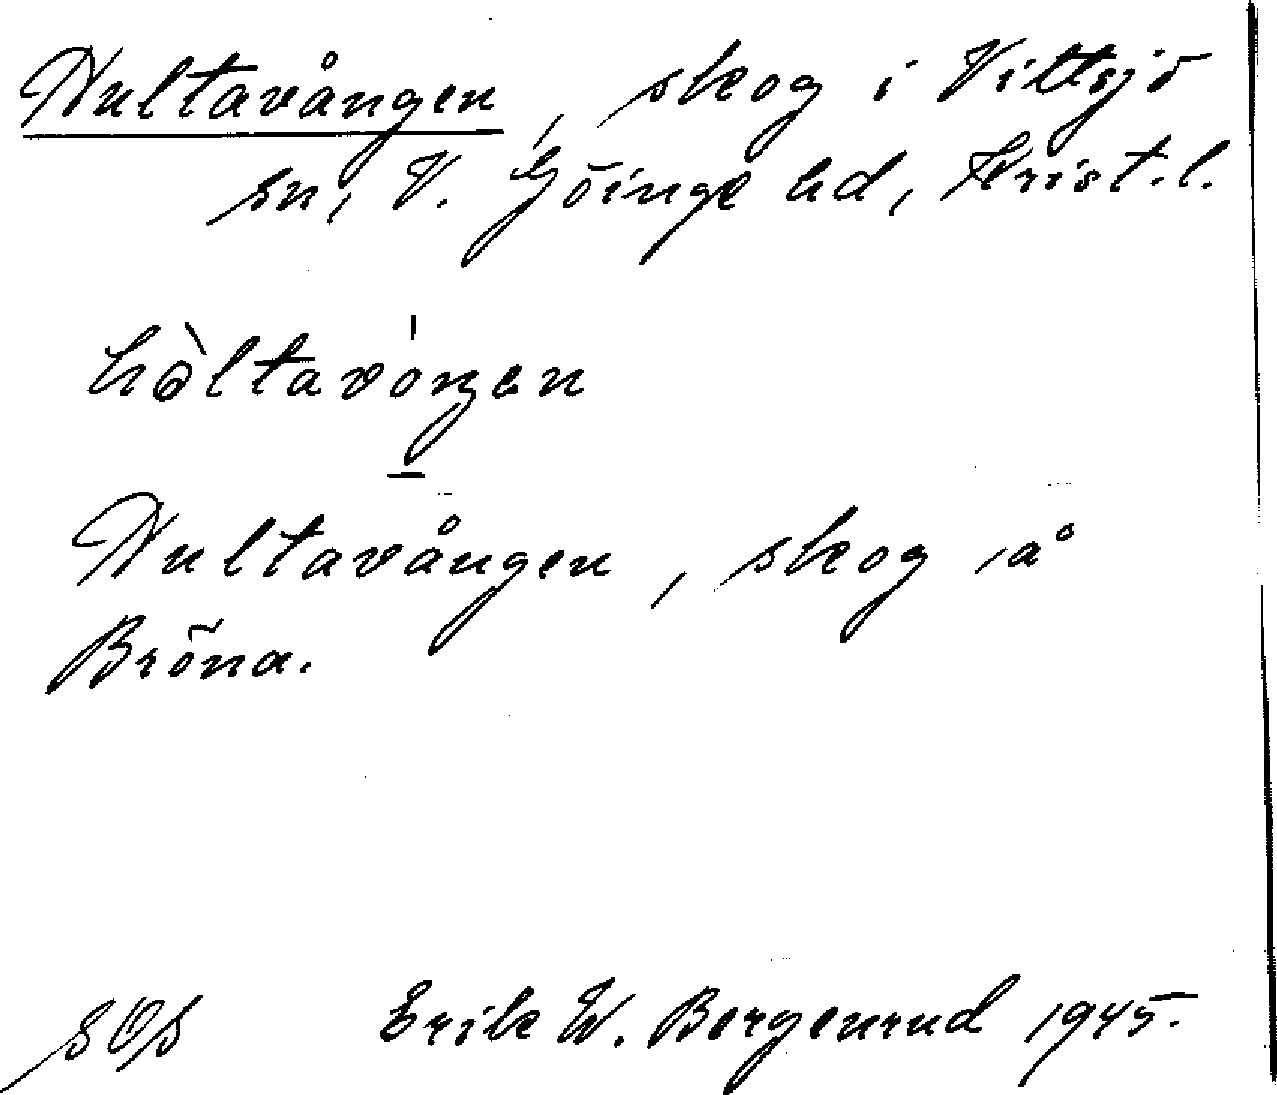 Hultavången, skog i Vittsjö
sn, V. Göinge hd, Krist.l.
hòltavóngen
Hultavången, skog å
Bröna.
SOS Erik W. Bergenrud 1945.